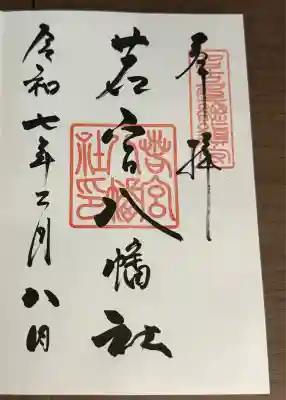 奉拝
若宮八幡社
令和七年二月八日
若宮
八幡
社印